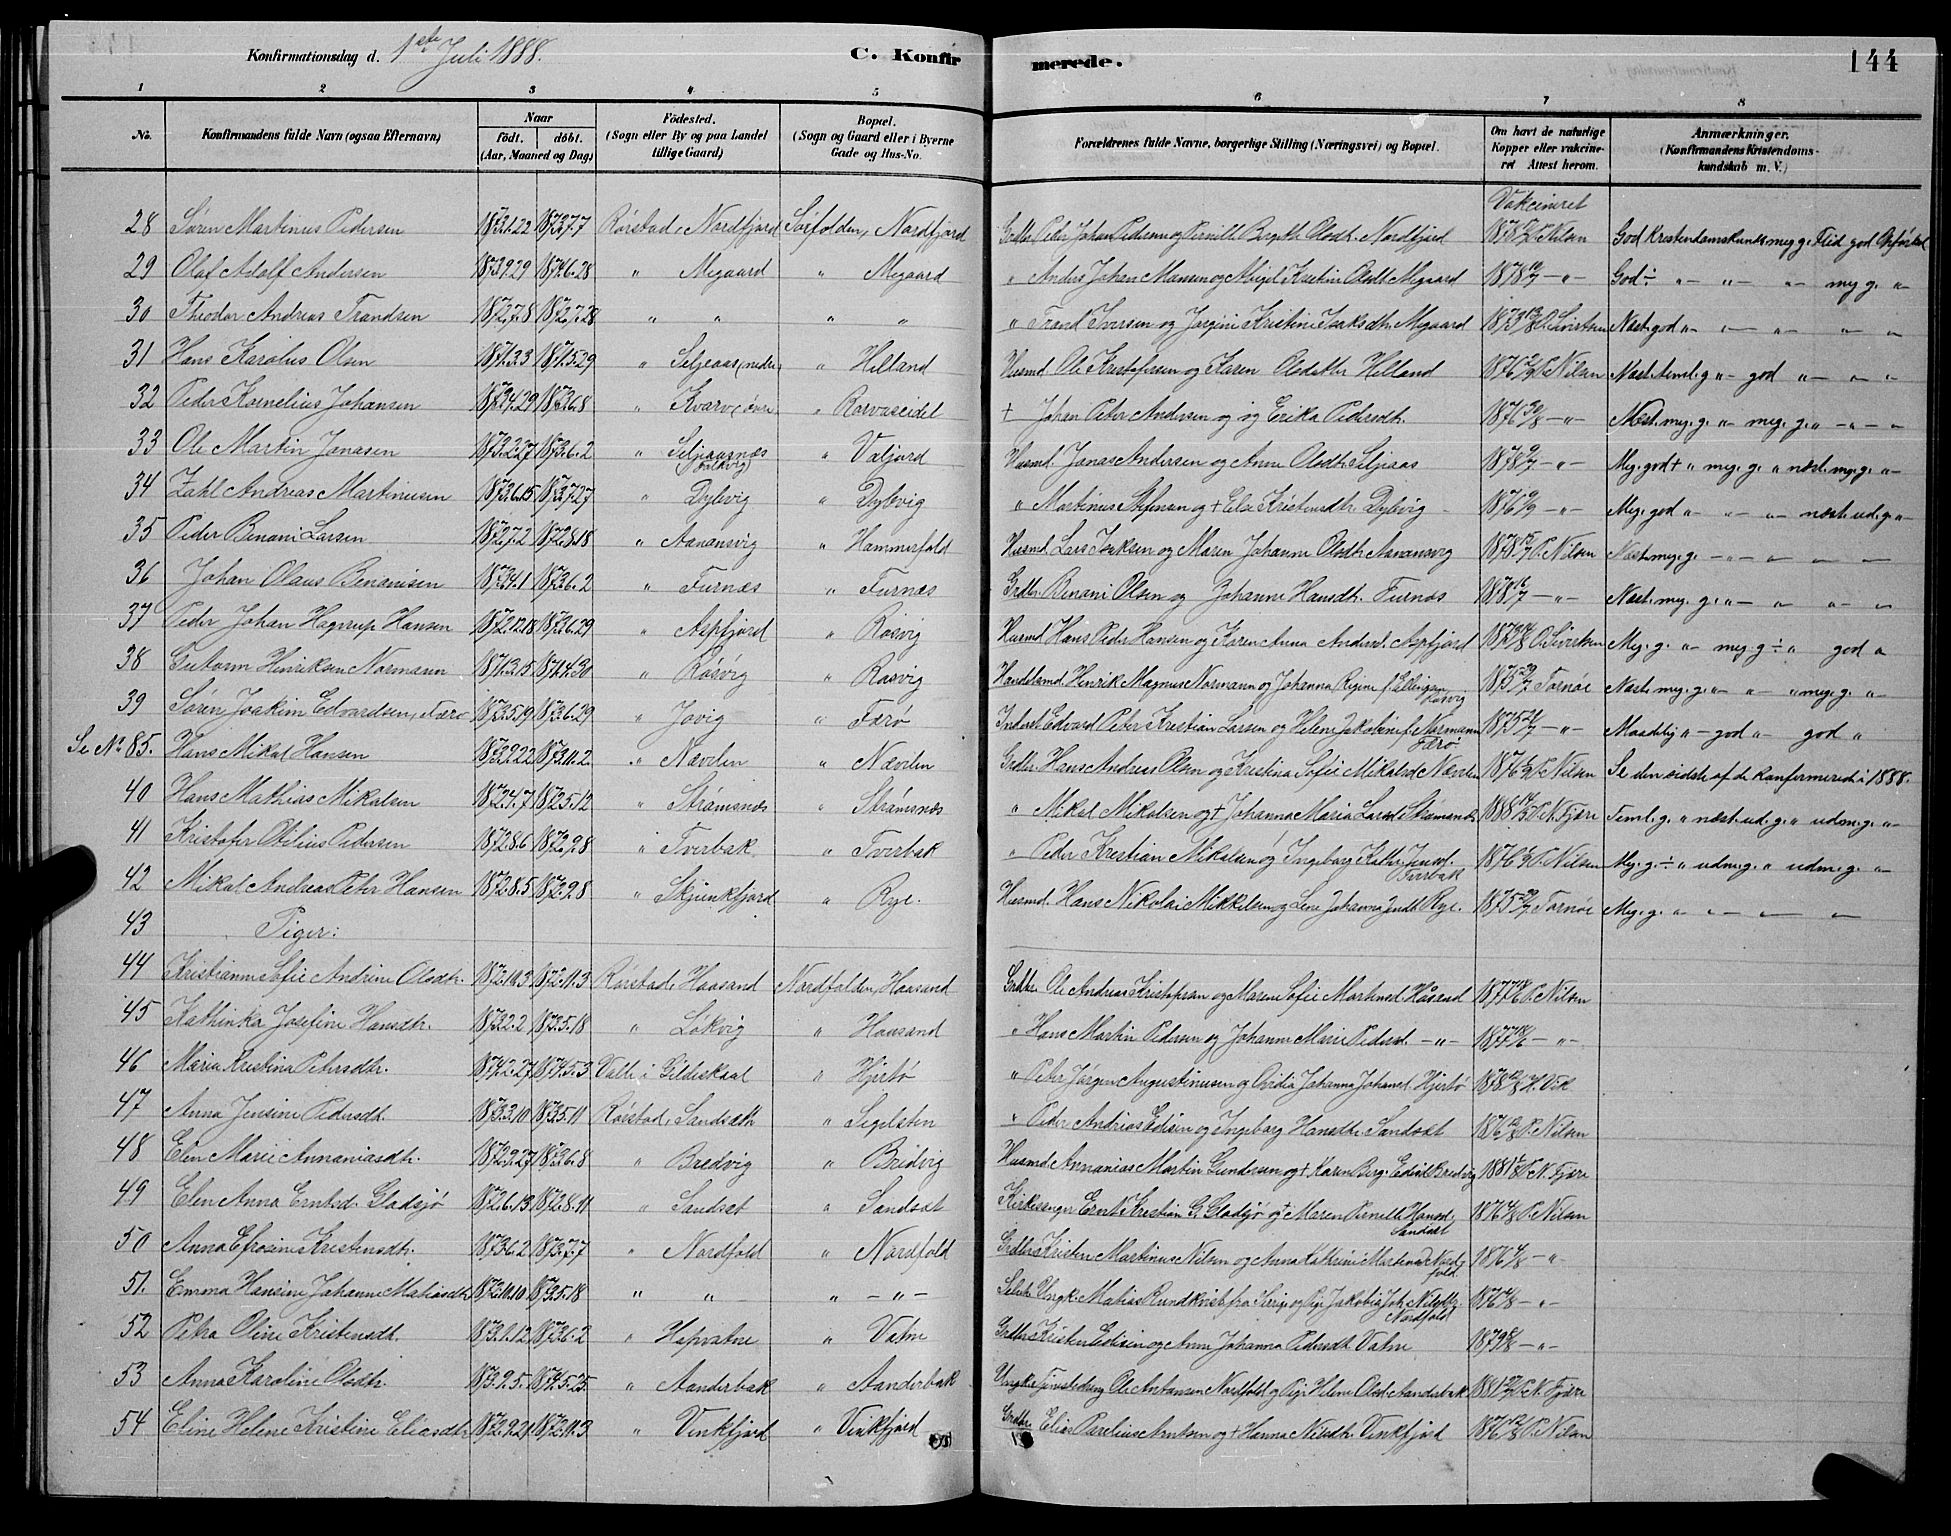 Konfirmationsdag d. 1ste Juli 1888.
C. Konfirmerede.
144
1 2 3 4 5 6 7 8
No. Konfirmandens fulde Navn (ogsaa Efternavn) Naar født. døbt. (Aar, Maaned og Dag) Fødested. (Sogn eller By og paa Landet tillige Gaard) Bopæl. (Sogn og Gaard eller i Byerne Gade og Hus-No. Forældrenes fulde Navne, borgerlige Stilling (Næringsvei) og Bopæl. Om havt de naturlige Kopper eller vakcineret Attest herom. Anmærkninger. (Konfirmandens Kristendomskundskab m. V.)
Vakcineret
28 Søren Martinus Pedersen 1873.1.22 1873.7.7 Rørstad, Nordfjord Sørfolden, Nordfjord Grdbr. Peder Johan Pedersen og Pernille Birgitte Olsdtr. Nordfjord 1878 P. Nilsen God Kristendomskundsk. meg. g. Flid god Opførsel
29 Olaf Adolf Andersen 1873.9.29 1874.6.28 " Megaard " Megaard " Anders Johan Monsen og Abigel Kristine Olsdtr. Megaard 1878 — " — God ÷ " — " — " — meg. g. "
30 Theodor Andreas Trondsen 1872.7.8 1872.7.28 " " " " " Trond Iversen og Jørgine Kristine Isaksdtr. Megaard 1873 O. Sivertsen Næst. god " — " — " — " — "
31 Hans Karolius Olsen 1871.3.3 1871.5.29 " Seljeaas (nedre) " Helland Husmd. Ole Kristofersen og Karen Olsdatter Helland 1876 P. Nilsen Næst. teml. g " — god " — " — "
32 Peder Kornelius Johansen 1873.4.29 1873.6.8 " Kvarv (øvre " Rørvaseidet + Johan Peter Andersen og Erika Pedersdtr. 1876 30/8 — " — Næst. meg. g. " — meg. g. " — " — "
33 Ole Martin Jonasen 1873.2.27 1873.6.2 " Seljeaasnæs " Valjord Husmd. Jonas Andersen og Anne Olsdtr. Seljeaas 1878 9/7 — " — Meg. god + " meg. g. " næst. meg. g. "
34 Zahl Andreas Martinusen 1873.6.15 1873.7.27 " Dybvig " Dybvig " Martinus Stefensen og + Else Kristensdtr. Dybvig 1876 — " — Meg. god " — " — " — næst. ud. g. "
35 Peder Benani Larsen 1872.7.2 1872.8.18 " Aanansvig " Hammerfold Husmd. Lars Isaksen og Maren Johanne Olsdtr. Aanansvig 1878 P. Nilsen Næst. meg. g. — " — " — " — "
36 Johan Olaus Benanisen 1873.4.1 1873.6.2 " Furnæs " Furnæs Grdbr. Benani Olsen og Johanne Hansdtr. Furnæs 1878 — " — Næst. meg. g. " — " " — "
37 Peder Johan Hagerup Hansen 1872.12.18 1873.6.29 " Aspfjord " Røsvig Husmd. Hans Peder Hansen og Karen Anna Andersd. Aspfjord 1873 O. Sivertsen Meg. g. " — meg. g ÷ " god "
38 Gutorm Henriksen Normann 1871.3.15 1871.4.30 " Røsvig " Røsvig Handelsmd. Henrik Magnus Normann og Johanna Regine f. Ellingsen Røsvig 1875 Tornøe Næst. meg. g. " — " — " meg. g. "
39 Søren Joakim Edvardsen, Færø 1873.5.19 1873.6.29 " Jøvig " Færø Inderst Edvard Peter Kristian Larsen og Helene Jakobine f. Normann Færø 1875 — " — Maadelig " — god " — god "
Se No 85. Hans Mikal Hansen 1873.9.22 1873.11.2. " Nævelen " Nævelen Grdbr. Hans Andreas Olsen og Kristina Sofie Mikalsd. Nævelen 1876 P. Nilsen Se den sidste af de konfirmerede i 1888.
40 Hans Mathias Mikalsen 1872.4.7 1872.5.12 " Strømsnæs " Strømsnæs " Mikal Mikalsen og + Johanna Maria Larsd. Strømsnæs 1888 P. N. Fjære Teml. g. " næst. ud. g. " udm. g. "
41 Kristofer Otelius Pedersen 1872.8.6 1872.9.8 " Tverbak " Tverbak " Peder Krestian Mikalsen og Ingeborg Kathr. Jensd. Tverbak 1876 P. Nilsen Meg. g. ÷ " udm. g. " udm. g. "
42 Mikal Andreas Peter Hansen 1872.8.5 1872.9.8 " Skjunkfjord " Rye. Husmd. Hans Nikolai Mikkelsen og Lene Johanna Rye. 1875 Tornøe Meg. g. " " — " — "
43 Piger:
44 Kristianne Sofie Andrine Olsdtr. 1872.10.3 1872.11.3 Rørstad, Haasand Nordfolden, Haasand Grdbr. Ole Andreas Kristofersen og Maren Sofie Martinsd. 1877 P. Nilsen
45 Kathinka Josefine Hansdtr. 1873.2.2 1873.5.18 " Løkvig " Haasand " Hans Martin Pedersen og Johanne Marie Pedersd. — " — 1877 — " —
46 Maria Kristina Petersdtr. 1874.2.27 1874.5.3 Valle i Gildeskaal " Hjertø " Peter Jørgen Augustinusen og Ovidia Johanna Johansd. Hjertø 1878 H. Vik
47 Anna Jensine Pedersdtr. 1873.3.10 1873.5.11 Rørstad, Sandsæth " Segelsten " Peder Andreas Edisen og Ingeborg Hansdtr. Sandsæt 1876 P. Nilsen
48 Elen Marie Annaniasdtr. 1872.9.27 1873.6.8 " Bredvig " Bredvig Husmd. Annanias Martin Gundersen og + Karen Berg. Bredvig 1881 P. N. Fjære
49 Elen Anna Erntsd. Gladsjø 1872.6.13 1872.8.11 " Sandset " Sandsæt Kirkesanger Ernt Kristian G. Gladsjø og + Maren Pernille Hansd. Sandsæt 1876 P. Nilsen
50 Anna Efrosine Kristensdtr. 1873.6.2 1873.7.7 " Nordfold " Nordfold Grdbr. Kristen Martinus Nilsen og Anna Kathrine Martinsd. Nordfold 1876 4/8 — "
51. Emma Hansine Johanne Matiasdtr. 1872.10.10 1873.5.18 " " " — " — Ungk. Matias Rundkvist fra og Pige Jakobia Joh. Nordfold 1876 — " —
52 Petra Oline Kristensdt. 1873.1.12 1873.6.2 " Hopvatne " Vatne Grdbr. Kristen Edisen og Anne Johanna Pedersdt. Vatne 1879 — " —
53 Anna Karoline Olsdtr. 1873.9.5. 1874.5.25. " Aanderbak " Aanderbak Ungk. Ole Antonsen Nordfold og Pige Helene Olsd. Aanderbak 1881 P. N. Fjære
54 Eline Helene Kristine Eliasdtr. 1872.9.21 1872.11.3 " Vinkfjord " Vinkfjord Grdbr. Elias Parelius Arntsen og + Hanna Nilsdtr. Vinkfjord 1876 P. Nilsen